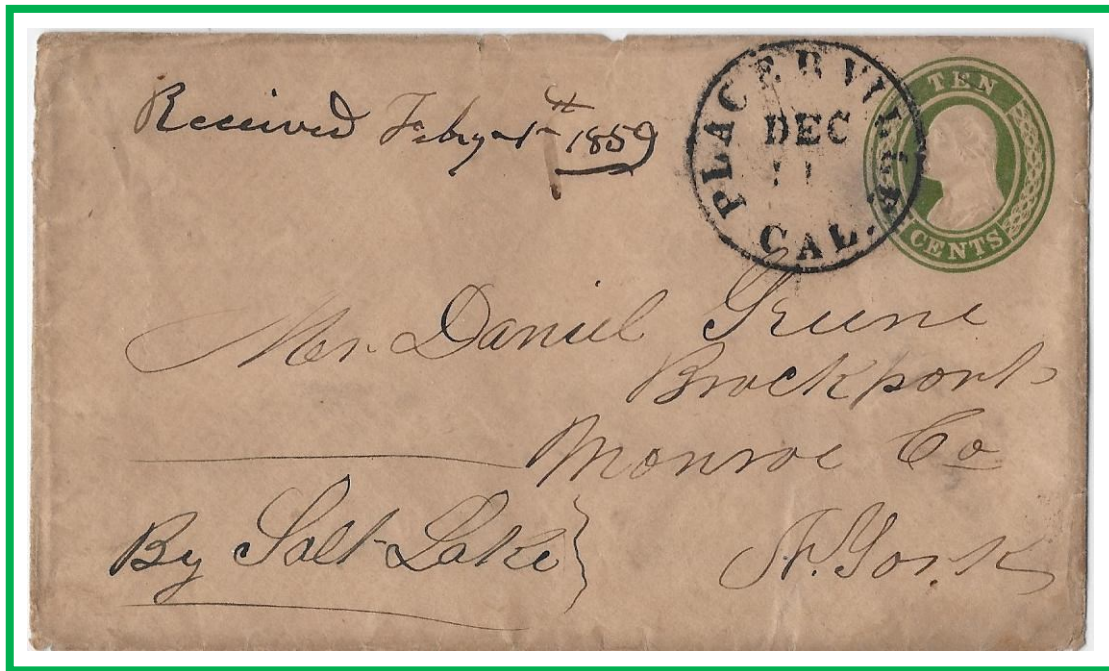 Received Febry 1th 1859
PLACERVILLE
DEC
11
CAL.
TEN
CENTS
Mr. Daniel Greene
Brockport
Monroe Co
By Salt Lake
N. York